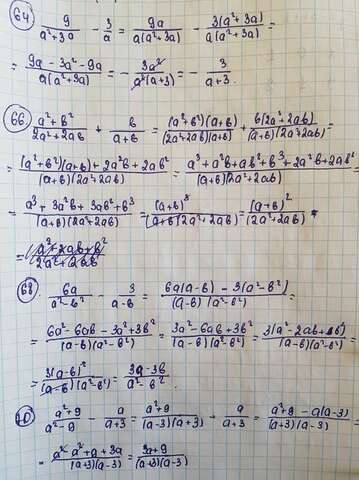 64) 9/(a²+3a) - 3/a = 9a/(a(a²+3a)) - 3(a²+3a)/(a(a²+3a)) =
= (9a-3a²-9a)/(a(a²+3a)) = - 3a²/(a²(a+3)) = - 3/(a+3).
66) (a²+b²)/(2a²+2ab) + b/(a+b) = (a²+b²)(a+b)/((2a²+2ab)(a+b)) + b(2a²+2ab)/((a+b)(2a²+2ab)) =
= ((a²+b²)(a+b)+2a²b+2ab²)/((a+b)(2a²+2ab)) = (a³+a²b+ab²+b³+2a²b+2ab²)/((a+b)(2a²+2ab)) =
= (a³+3a²b+3ab²+b³)/((a+b)(2a²+2ab)) = (a+b)³/((a+b)(2a²+2ab)) = (a+b)²/(2a²+2ab)
= (a²+2ab+b²)/(2a²+2ab)
68) 6a/(a²-b²) - 3/(a-b) = (6a(a-b)-3(a²-b²))/((a-b)(a²-b²)) =
= (6a²-6ab-3a²+3b²)/((a-b)(a²-b²)) = (3a²-6ab+3b²)/((a-b)(a²-b²)) = 3(a²-2ab+b²)/((a-b)(a²-b²)) =
= 3(a-b)²/((a-b)(a²-b²)) = (3a-3b)/(a²-b²)
70) (a²+9)/(a²-9) - a/(a+3) = (a²+9)/((a-3)(a+3)) - a/(a+3) = (a²+9-a(a-3))/((a+3)(a-3)) =
= (a²-a²+9+3a)/((a+3)(a-3)) = (3a+9)/((a+3)(a-3))